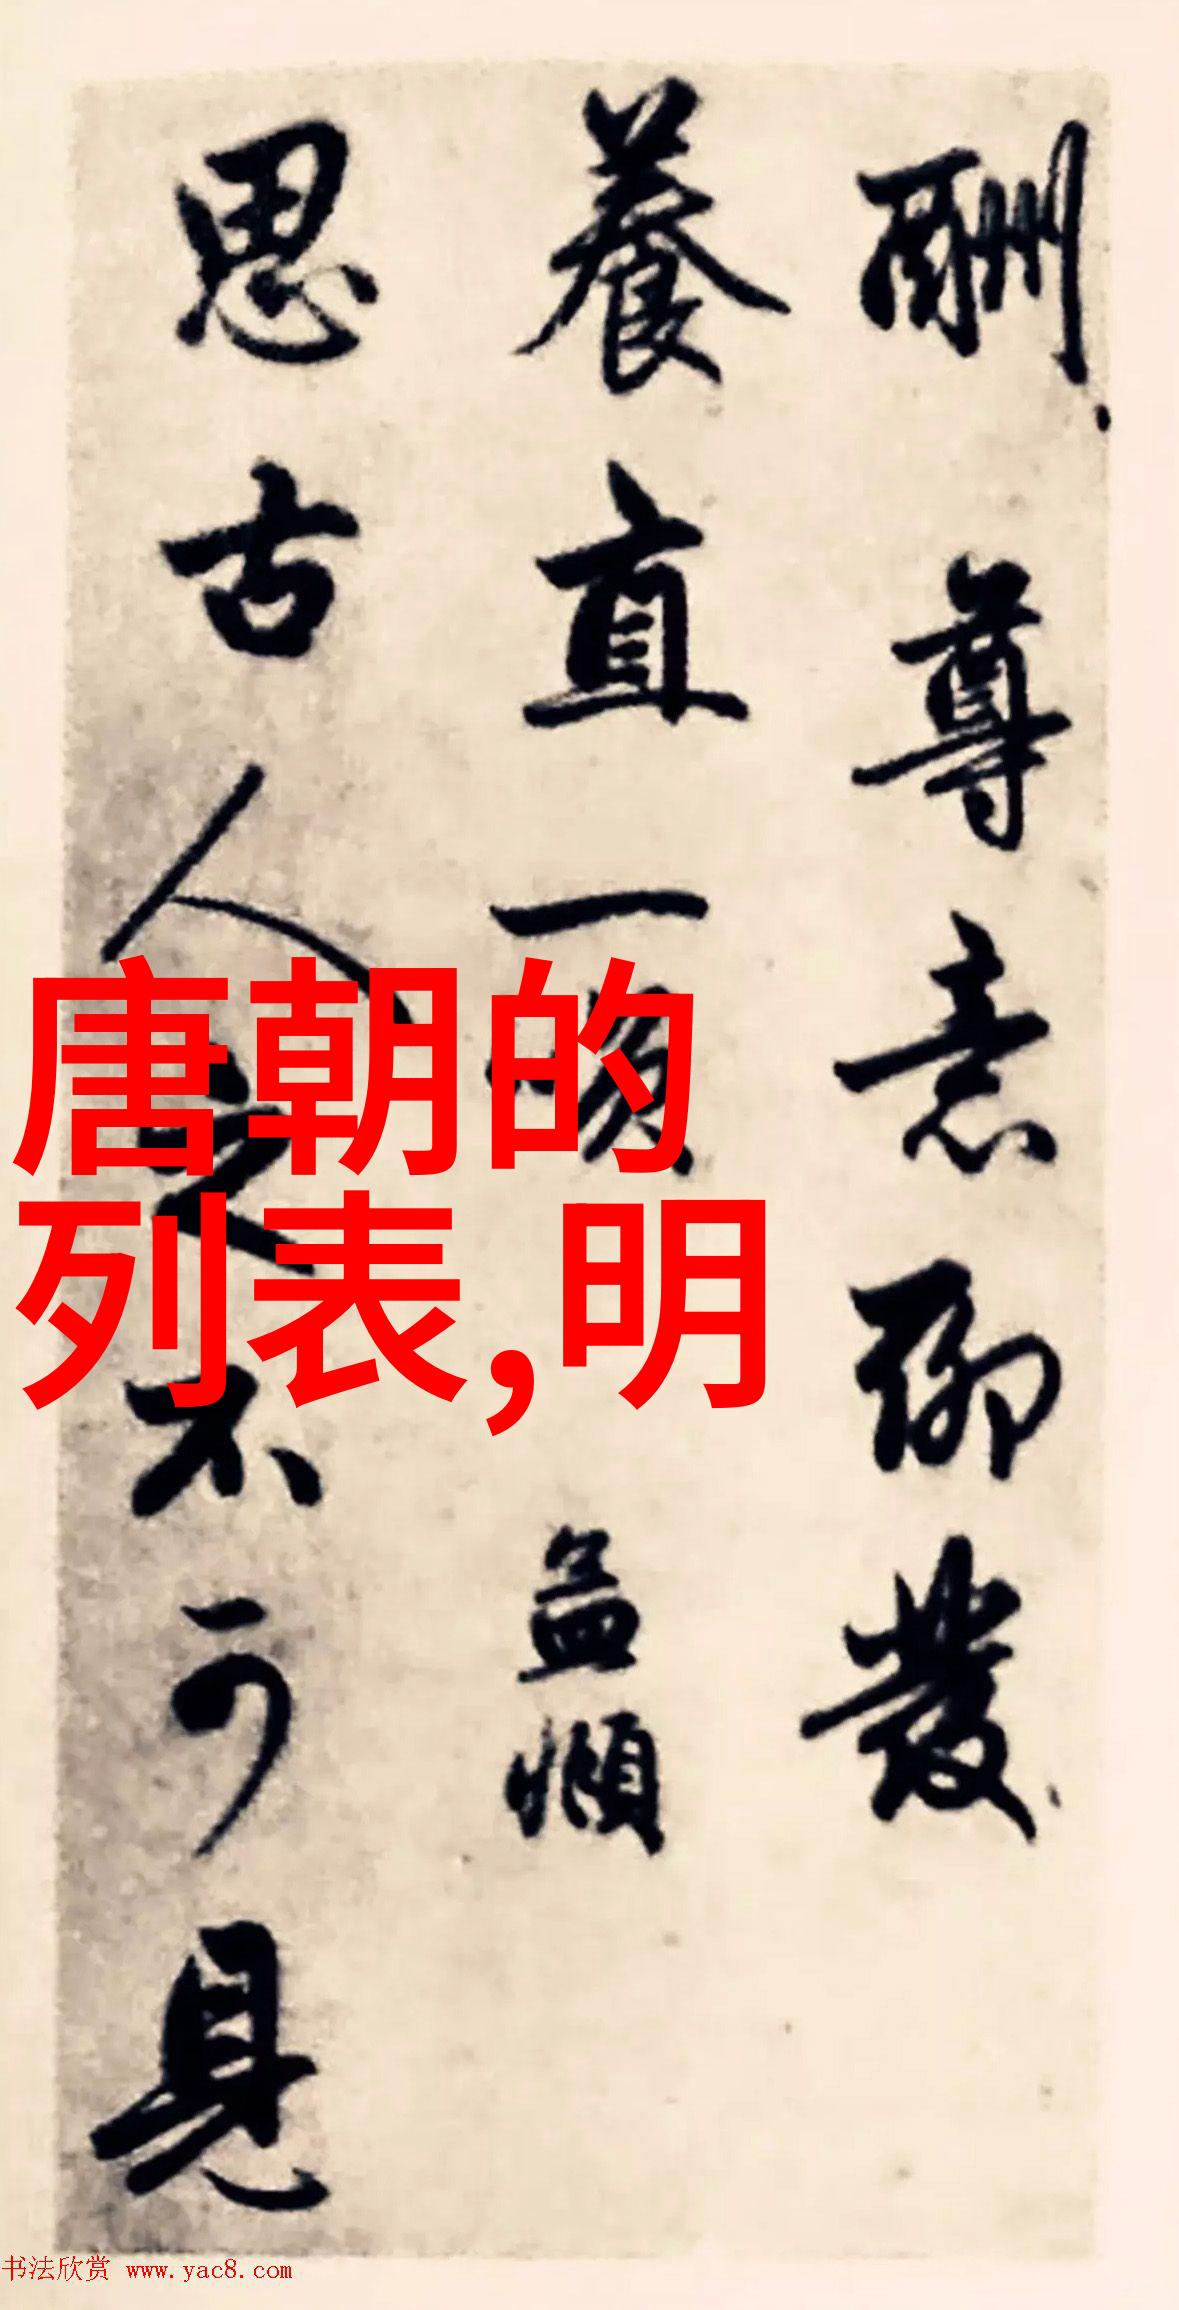 酬尊意聊發
養直一唉
益頫
思古人之不可見
唐朝的
列表,明
书法欣赏 www.yac8.com